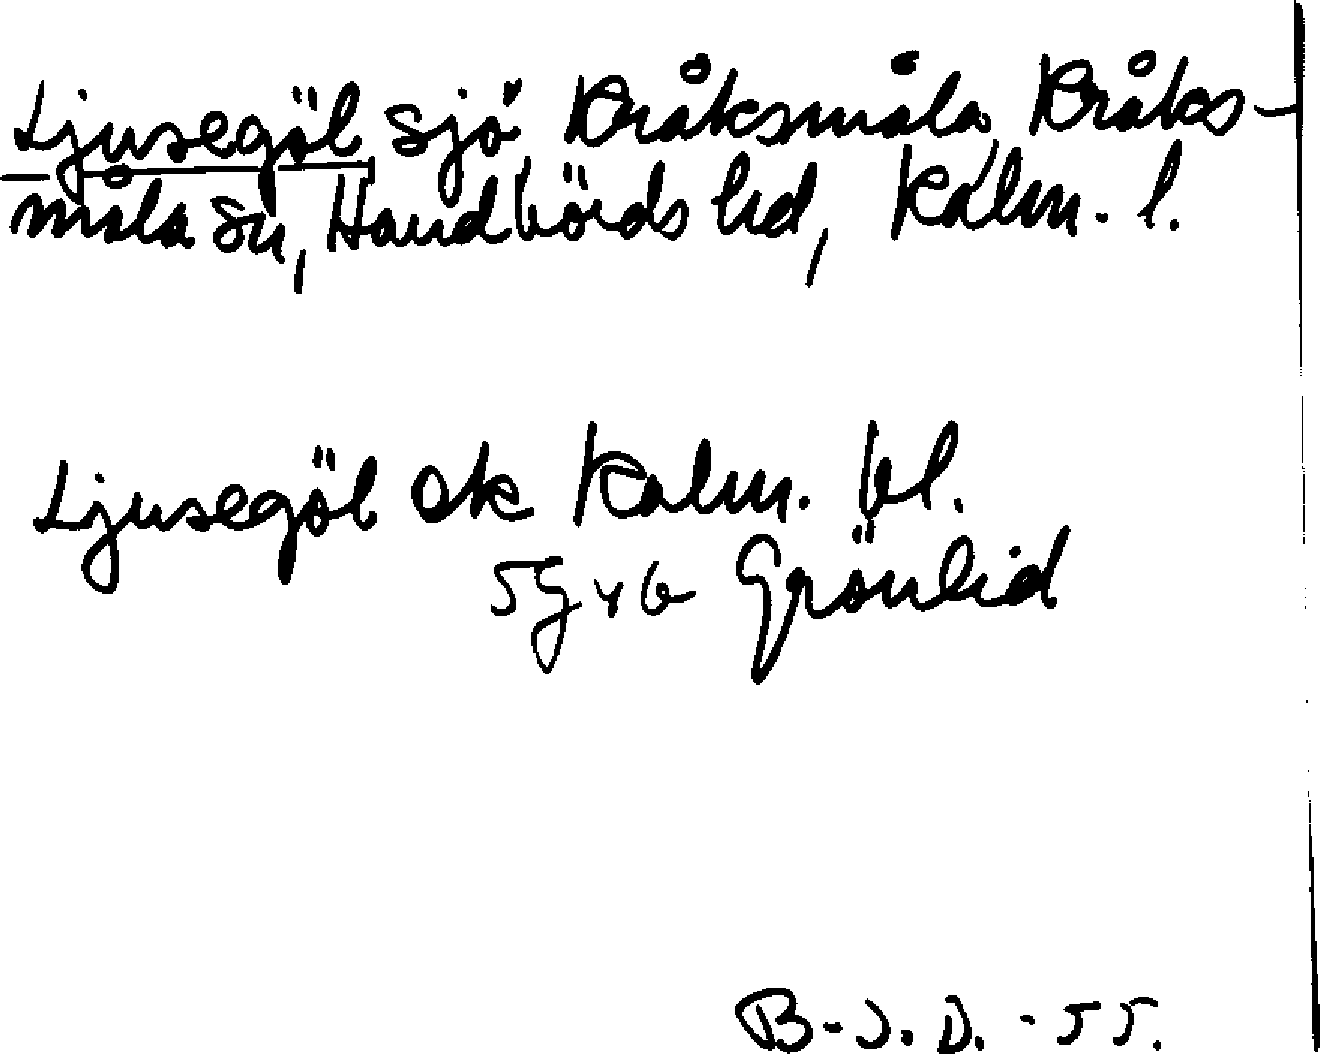 Ljusegöl sjö Kråksmåla, Kråks-
måla sn, Handbörds hd, Kalm. l.
Ljusegöl ek Kalm. bl.
5G v b Grönlid
B-J. D. -55.